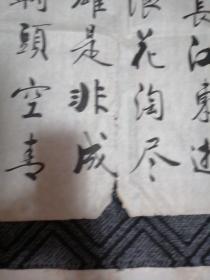 長江東逝
浪花淘尽
雄是非成
轉頭空青